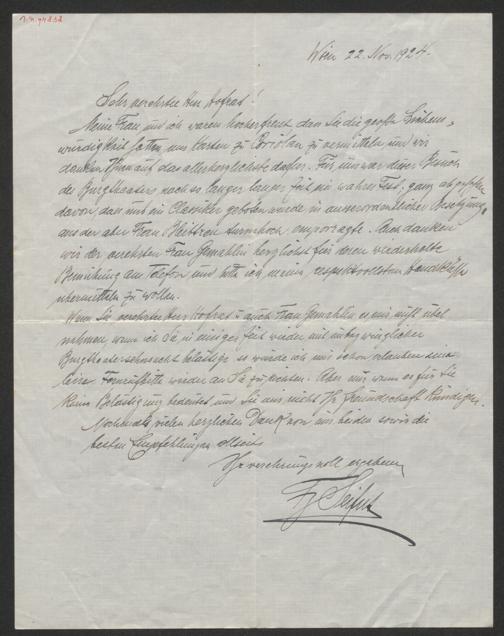 Wien 22. Nov. 1924.
Sehr verehrter Herr Hofrat!
Meine Frau und ich waren hocherfreut dass Sie die grosse Liebens-
würdigkeit hatten, uns Karten zu Coriolan zu vermitteln und wir
danken Ihnen auf das allerherzlichste dafür. Für uns war dieser Besuch
des Burgtheaters nach so langer Zeit ein wahres Fest, ganz abgesehen
davon, dass uns ein Classiker geboten wurde in ausserordentlicher Besetzung,
aus der aber Frau Bleibtreu turmhoch emporragte. Auch danken
wir der verehrten Frau Gemahlin herzlichst für deren wiederholte
Bemühung am Telefon und bitte ich meine respektvollsten Handküsse
übermitteln zu wollen.
Wenn Sie verehrter Herr Hofrat u. auch Frau Gemahlin es mir nicht übel
nehmen, wenn ich Sie in einiger Zeit wieder mit unbezwinglicher
Burgtheatersehnsucht belästige so würde ich mir schon erlauben eine
leise Bitte wieder an Sie zu richten. Aber nur, wenn es für Sie
keine Belästigung bedeutet und Sie uns nicht Ihre Freundschaft kündigen.
Nochmals vielen herzlichen Dank von uns beiden sowie die
besten Empfehlungen allseits
Ihr verehrungsvoll ergebener
Seifert